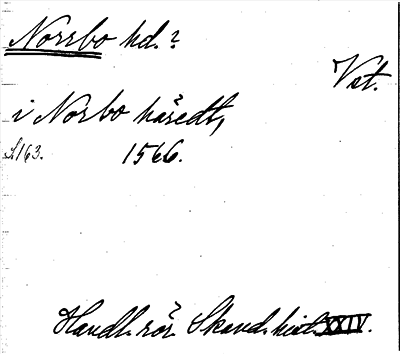 Norrbo hd.?
Vst.
i Norbo häredt,
S. 163. 1566.
Handl. rör. Skand. hist. XXIV.